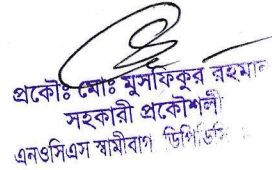 প্রকৌঃ মোঃ মুসফিকুর রহমান
সহকারী প্রকৌশলী
এনওসিএস স্বামীবাগ ডিপিডিসি